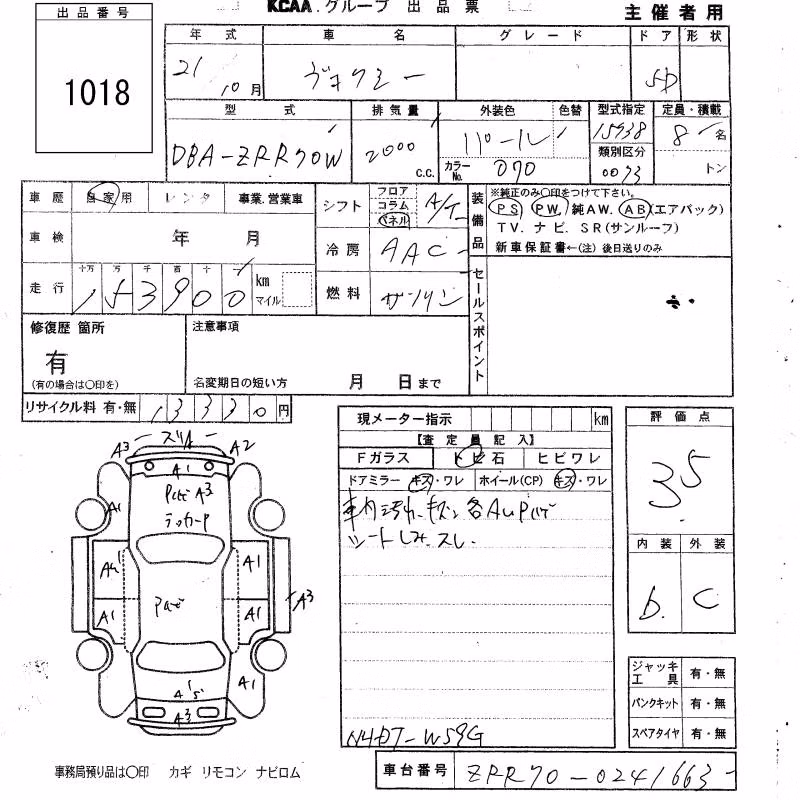 KCAA.グループ 出品票
主催者用
出品番号
1018
年式 車名 グレード ドア 形状
21 10月 ヴォクシー 5D
型式 排気量 外装色 色替 型式指定 定員・積載
DBA-ZRR70W 2000 c.c. パール 15938 8名
カラーNo. 070 類別区分 0073 トン
車歴 自家用 レンタ 事業.営業車
シフト フロア コラム パネル A/T
装備品 ※純正のみ〇印をつけて下さい。
PS PW. 純AW. AB(エアバック)
TV. ナビ. SR(サンルーフ)
新車保証書←(注) 後日送りのみ
車検 年 月
冷房 AAC
走行 十万 万 千 百 十 一
153900 km マイル
燃料 ガソリン
セールスポイント
修復歴 箇所
有
(有の場合は〇印を)
注意事項
名変期日の短い方 月 日まで
リサイクル料 有・無 13330円
現メーター指示 km
【査定員記入】
Fガラス トビ石 ヒビワレ
ドアミラー キズ・ワレ ホイール(CP) キズ・ワレ
車内汚れ.キズ. 各AUPパテ
シートしみ.スレ.
N4DT-W59G
評価点
35
内装 外装
b. C
ジャッキ工具 有・無
パンクキット 有・無
スペアタイヤ 有・無
A3 スリキ A2
A1
Pパセ A3
テッカーP
A1
A4 A1
A1 A1 A3
A1
A3
事務局預り品は〇印 カギ リモコン ナビロム
車台番号 ZRR70-0241663